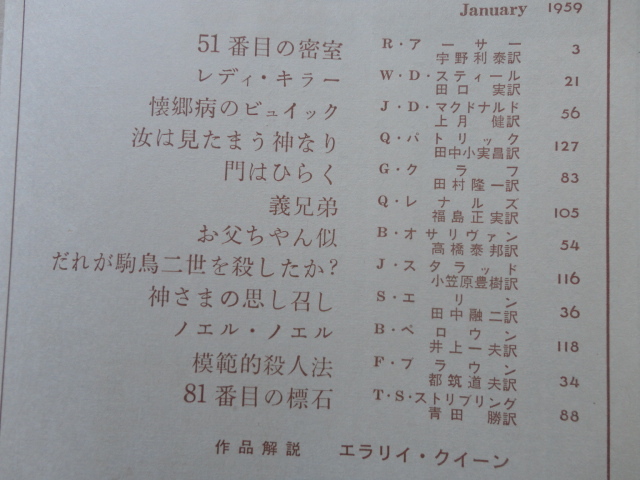 January 1959
51番目の密室 R・アーサー 宇野利泰訳 3
レディ・キラー W・D・スティール 田口実訳 21
懐郷病のビュイック J・D・マクドナルド 上月健訳 56
汝は見たまう神なり Q・パトリック 田中小実昌訳 127
門はひらく G・クラフ 田村隆一訳 83
義兄弟 Q・レナルズ 福島正実訳 105
お父ちゃん似 B・オサリヴァン 高橋泰邦訳 54
だれが駒鳥二世を殺したか? J・スタラッド 小笠原豊樹訳 116
神さまの思し召し S・エリン 田中融二訳 36
ノエル・ノエル B・ペロウン 井上一夫訳 118
模範的殺人法 F・ブラウン 都筑道夫訳 34
81番目の標石 T・S・ストリブリング 青田勝訳 88
作品解説 エラリイ・クイーン